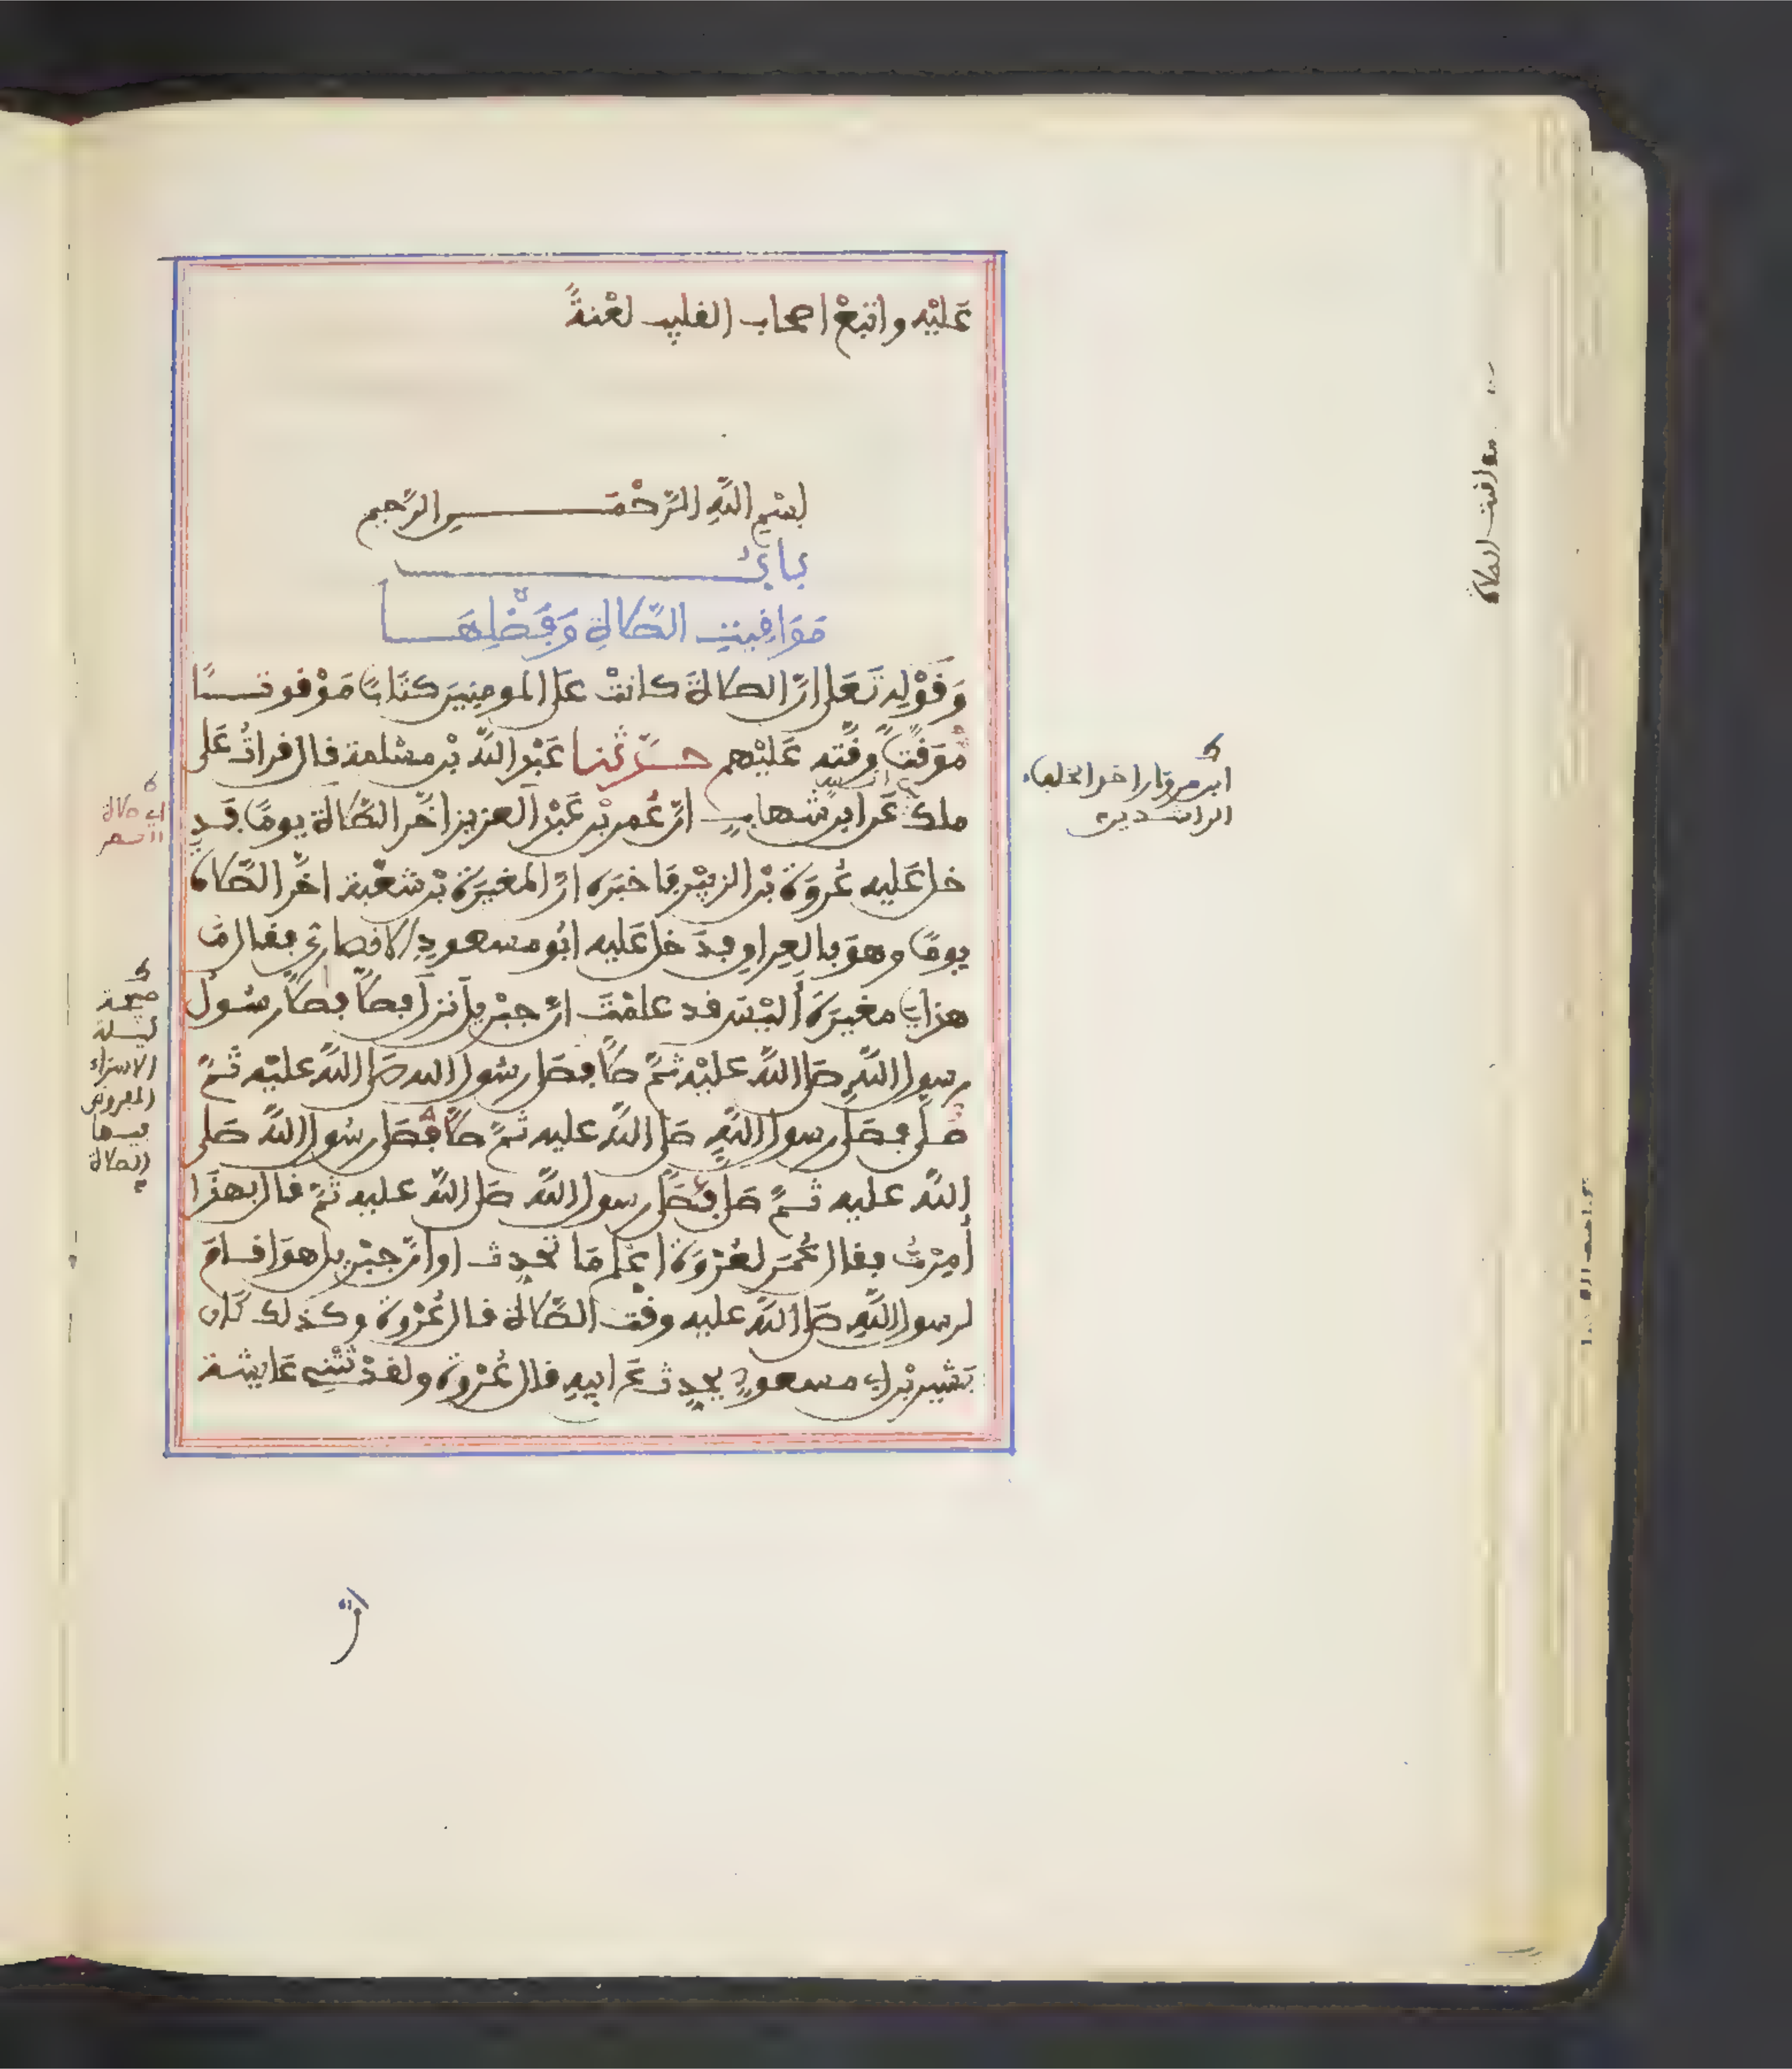 عَليْه واتبعْ اصحاب القليب لعْنةً
بسْم اللَّهِ الرَّحْمَن الرَّحِيم
بابُ
مَوَاقِيتِ الصَّلاةِ وَفَضْلِهَا
وَقَوْلِهِ تَعَلى انَّ الصلاةَ كانتْ عَلى المومِنِينَ كتَابًا مَوْقوتًا
مُوَقَّتًا وقَّته عَليْهم حدّثنا عَبْد اللَّه بْن مسْلمة قال قراتُ عَلى
ملك عَن ابن شهابٍ انّ عُمر بْن عَبْد العزيز اخَّر الصَّلاةَ يومًا فَدَ
خل عَليه عُروَة بْن الزبيْر فاخبَره انّ المغيرَة بْن شعْبة اخَّر الصَّلاة
يومًا وهوَ بالعِراق فدَخل عَليه ابُو مسعودٍ الانصاريّ فقال مَا
هذا يا مغيرَة أليْسَ قد علمْتَ انّ جبْريل نزل فصلَّى فصلَّى رسُول
رسول اللَّهِ صَلى اللَّه عليْه ثمَّ صلَّى فصَلى رسُول الله صَلى اللَّه عليْه ثُمَّ
صَلى فصَلى رسول اللَّهِ صَلى اللَّه عليه ثمَّ صلَّى فصَلى رسُول اللَّه صَلى
اللَّه عليه ثمَّ صَلى فصَلى رسول اللَّه صَلى اللَّه عليه ثمَّ قال بهذَا
أُمِرْتُ فقال عُمَر لعُرْوَة اعْلم مَا تحدِث اوَانّ جبْريل هوَ اقامَ
لرسول اللَّهِ صَلى اللَّه عليه وقْت الصَّلاة قال عُرْوة وكذلك كان
بَشير بْن ابي مسعودٍ يحدِث عَن ابيهِ قال عُرْوة ولقدْ ثتْنِي عَايشة
ابن مروان اخر الخلفاء
الراشدين
اي صلاة
العصر
صبيحة
ليلة
الاسراء
المفروض
فيها
الصلاة
مواقيت الصلاة